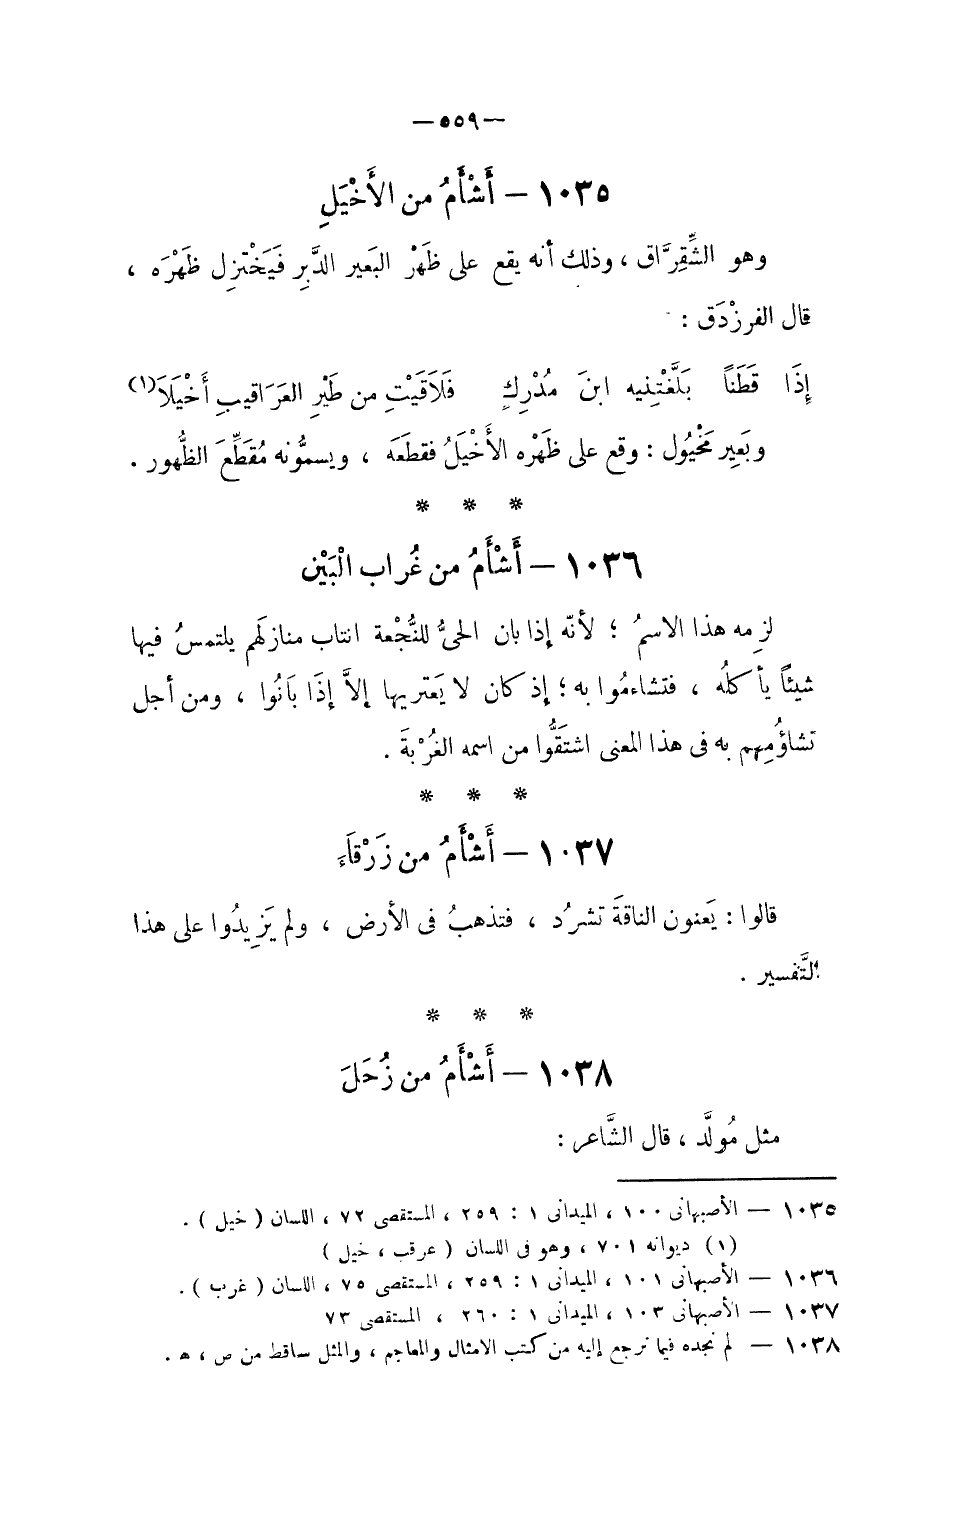 —٥٥٩—
١٠٣٥ — أَشْأَمُ من الأَخْيَلِ
وهو الشِّقِرَّاق ، وذلك أنه يقع على ظَهْر البَعير الدَّبِر فَيَخْتزِل ظَهْرَه ،
قال الفرزْدَق :
إِذَا قَطَناً بَلَّغْتِنيه ابنَ مُدْرِكٍ فَلَاقَيْتِ من طَيْرِ العَرَاقيبِ أَخْيَلَا(١)
وبَعِير مَخْيُول : وقع على ظَهْره الأَخْيَلُ فقطَعَه ، ويسمُّونه مُقَطِّعَ الظُّهور .
* * *
١٠٣٦ — أَشْأَمُ من غُراب الْبَيْن
لزِمه هذا الاسمُ ؛ لأنّه إذا بان الحىُّ للنُّجْعة انتاب منازلَهم يلتمسُ فيها
شيئاً يأكلُه ، فتشاءمُوا به ؛ إذ كان لا يَعتريها إلاَّ إذَا بَانُوا ، ومن أجل
تشاؤُمِهم به فى هذا المعنى اشتَقُّوا من اسمه الغُرْبةَ .
* * *
١٠٣٧ — أَشْأَمُ من زَرْقَاءَ
قالوا : يَعنون الناقةَ تشرُد ، فتذهبُ فى الأرض ، ولم يَزِيدُوا على هذا
التَّفسير .
* * *
١٠٣٨ — أَشْأَمُ من زُحَلَ
مثل مُولَّد ، قال الشَّاعر :
١٠٣٥ — الأصبهانى ١٠٠ ، الميدانى ١ : ٢٥٩ ، المستقصى ٧٢ ، اللسان ( خيل ) .
(١) ديوانه ٧٠١ ، وهو فى اللسان ( عرقب ، خيل )
١٠٣٦ — الأصبهانى ١٠١ ، الميدانى ١ : ٢٥٩ ، المستقصى ٧٥ ، اللسان ( غرب ) .
١٠٣٧ — الأصبهانى ١٠٣ ، الميدانى ١ : ٢٦٠ ، المستقصى ٧٣
١٠٣٨ — لم نجده فيما نرجع إليه من كتب الامثال والمعاجم ، والمثل ساقط من ص ، ه .